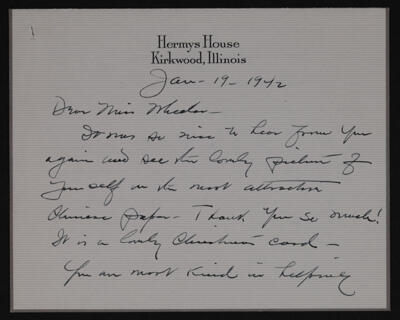 Hermys House
Kirkwood, Illinois
Jan- 19- 1942
Dear Miss Wheeler-
It was so nice to hear from you
again and see the lovely picture of
yourself on the most attractive
Chinese paper- Thank you so much!
It is a lovely Christmas card-
You are most kind in helping